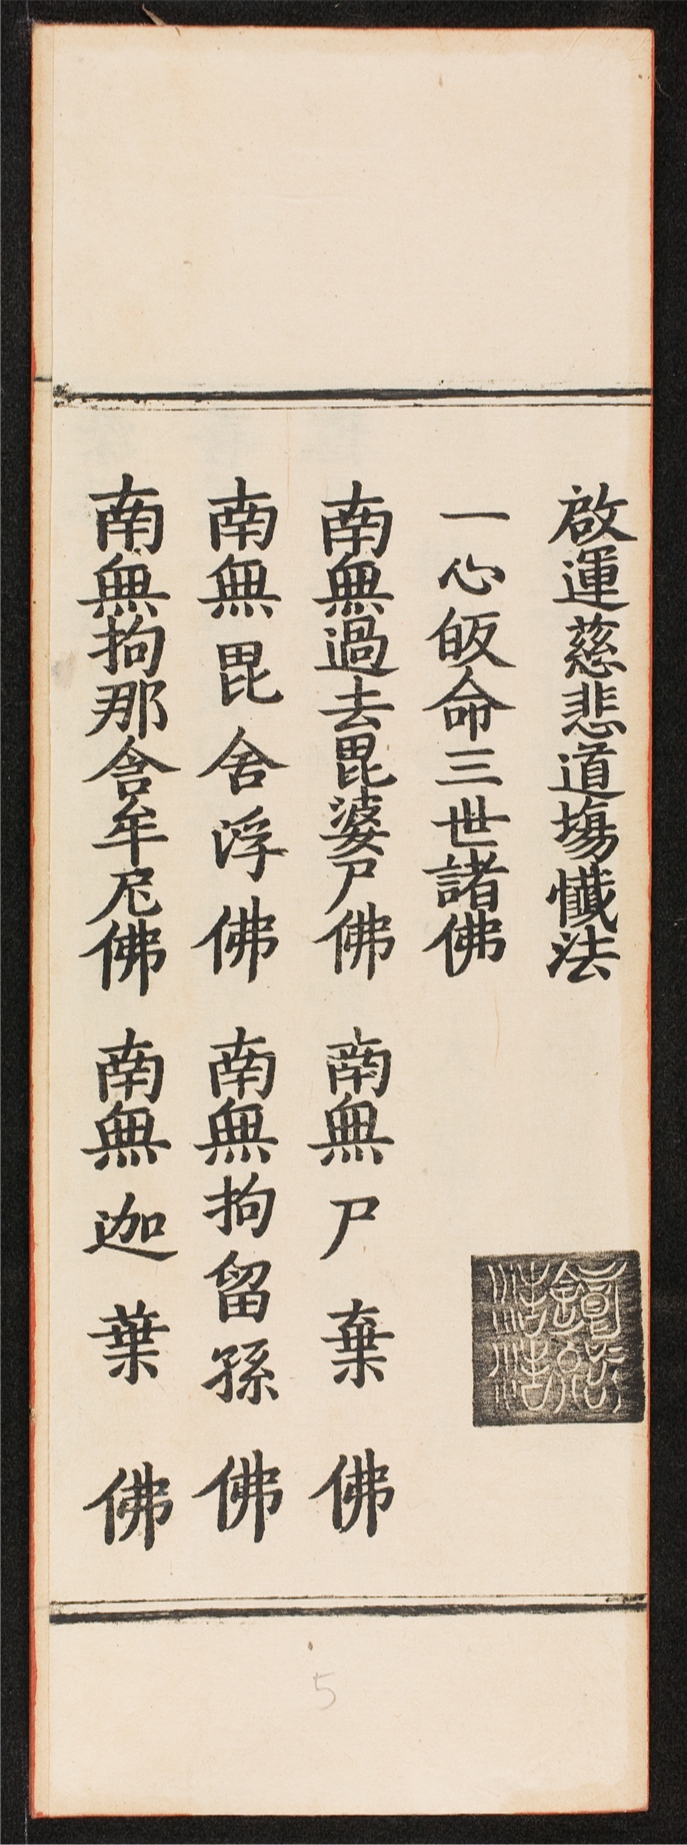 啟運慈悲道塲懴法
一心皈命三世諸佛
南無過去毘婆尸佛 南無尸棄佛
南無毘舍浮佛 南無拘留孫佛
南無拘那含牟尼佛 南無迦葉佛
5